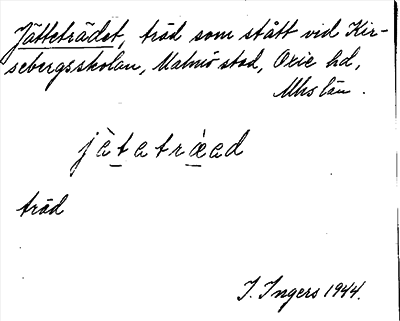 Jätteträdet, träd som stått vid Kir-
sebergsskolan, Malmö stad, Oxie hd,
Mhs län.
jὰtatræ̀ad
träd
I. Ingers 1944.